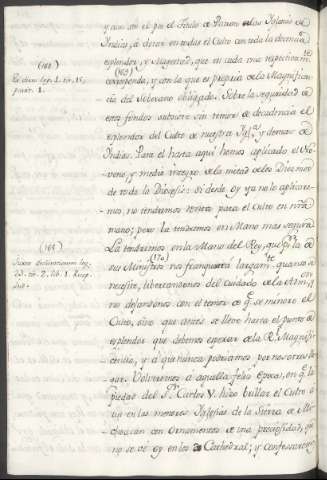 y aun en el por el Titulo de Patron de las Iglesias de
Indias, á dotar en todas el Culto con toda la decencia,
esplendor, y Magestad, que en cada una respectivamte
(168)
corresponda, y con la que es propria de la Magnificen
cia del Soberano obligado. Sobre la seguridad de
estos fondos subsiste sin temor de decadencia el
esplendor del Culto de nuestra Iglª y demas de
Indias. Para el hasta aqui hemos aplicado el No-
veno, y medio de la mitad de los Diezmos
de toda la Diocesis: Si desde oy ya no lo aplicare-
mos, no tendremos renta para el Culto en nrā
mano; pero la tendremos en Mano mas segura.
La tendremos en la Mano del Rey, que pr la de
(170)
sus Ministros nos franqueará largamte quanto se
necesite, libertandonos del cuidado de la Admon,
no dexandonos con el temor de q.e se minore el
Culto, sino que antes se lleve hasta el punto de
esplendor que debemos esperar de la Rl Magnifi-
cencia, y á qui nunca podriamos por nosotros lle-
gar. Volveremos á aquella feliz Epoca, en q.e la
piedad del Sr Carlos V. hizo brillar el Culto a
un en las menores Iglesias de la Sierra de Me-
choacan con Ornamentos de una preciosidad, que
no se vé oy en la Cathedral; y confesaremos
(168)
part. 1.
(169)